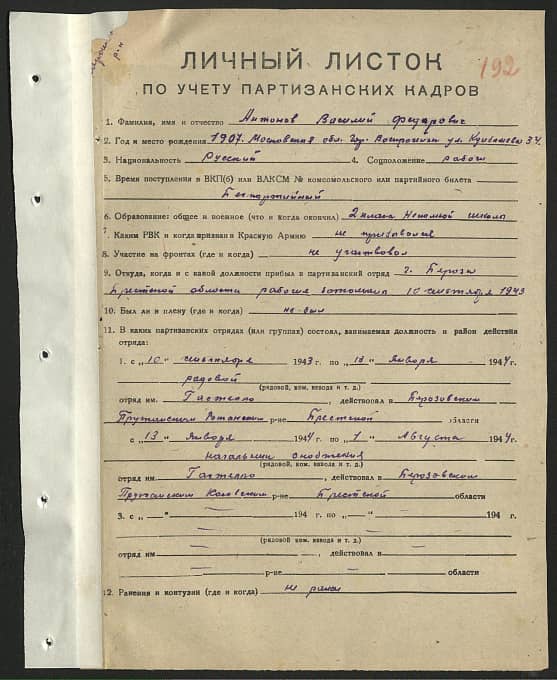 р-н
192
ЛИЧНЫЙ ЛИСТОК
ПО УЧЕТУ ПАРТИЗАНСКИХ КАДРОВ
1. Фамилия, имя и отчество Антонов Василий Федарович
2. Год и место рождения 1907. Московская обл. гор. ул. Куйбышева 34.
3. Национальность Русский 4. Соцположение рабоч
5. Время поступления в ВКП(б) или ВЛКСМ № комсомольского или партийного билета
Безпартийный
6. Образование: общее и военное (что и когда окончил) 2 класа школы
7. Каким РВК и когда призван в Красную Армию не призывался
8. Участие на фронтах (где и когда) не участвовал
9. Откуда, когда и с какой должности прибыл в партизанский отряд г. Береза
Брестской области рабочие 10 сентября 1943
10. Был ли в плену (где и когда) не был
11. В каких партизанских отрядах (или группах) состоял, занимаемая должность и район действия
отряда:
1. с „10“ сентября 1943 г. по „13“ Января 1944 г.
радовой
(рядовой, ком. взвода и т. д.)
отряд им. Гастелло, действовал в Берозовском
Пружанским р-не Брестской области
с „13“ Января 1944 г. по „1“ Августа 1944 г.
начальник снобжения
(рядовой, ком. взвода и т. д.)
отряд им. Гастелло, действовал в Берозовском
Пружанским р-не Брестской области
3. с „—“ — 194 г. по „—“ — 194 г.
—
(рядовой, ком. взвода и т. д.)
отряд им — , действовал в —
— р-не — области
12. Ранения и контузии (где и когда) не ранен